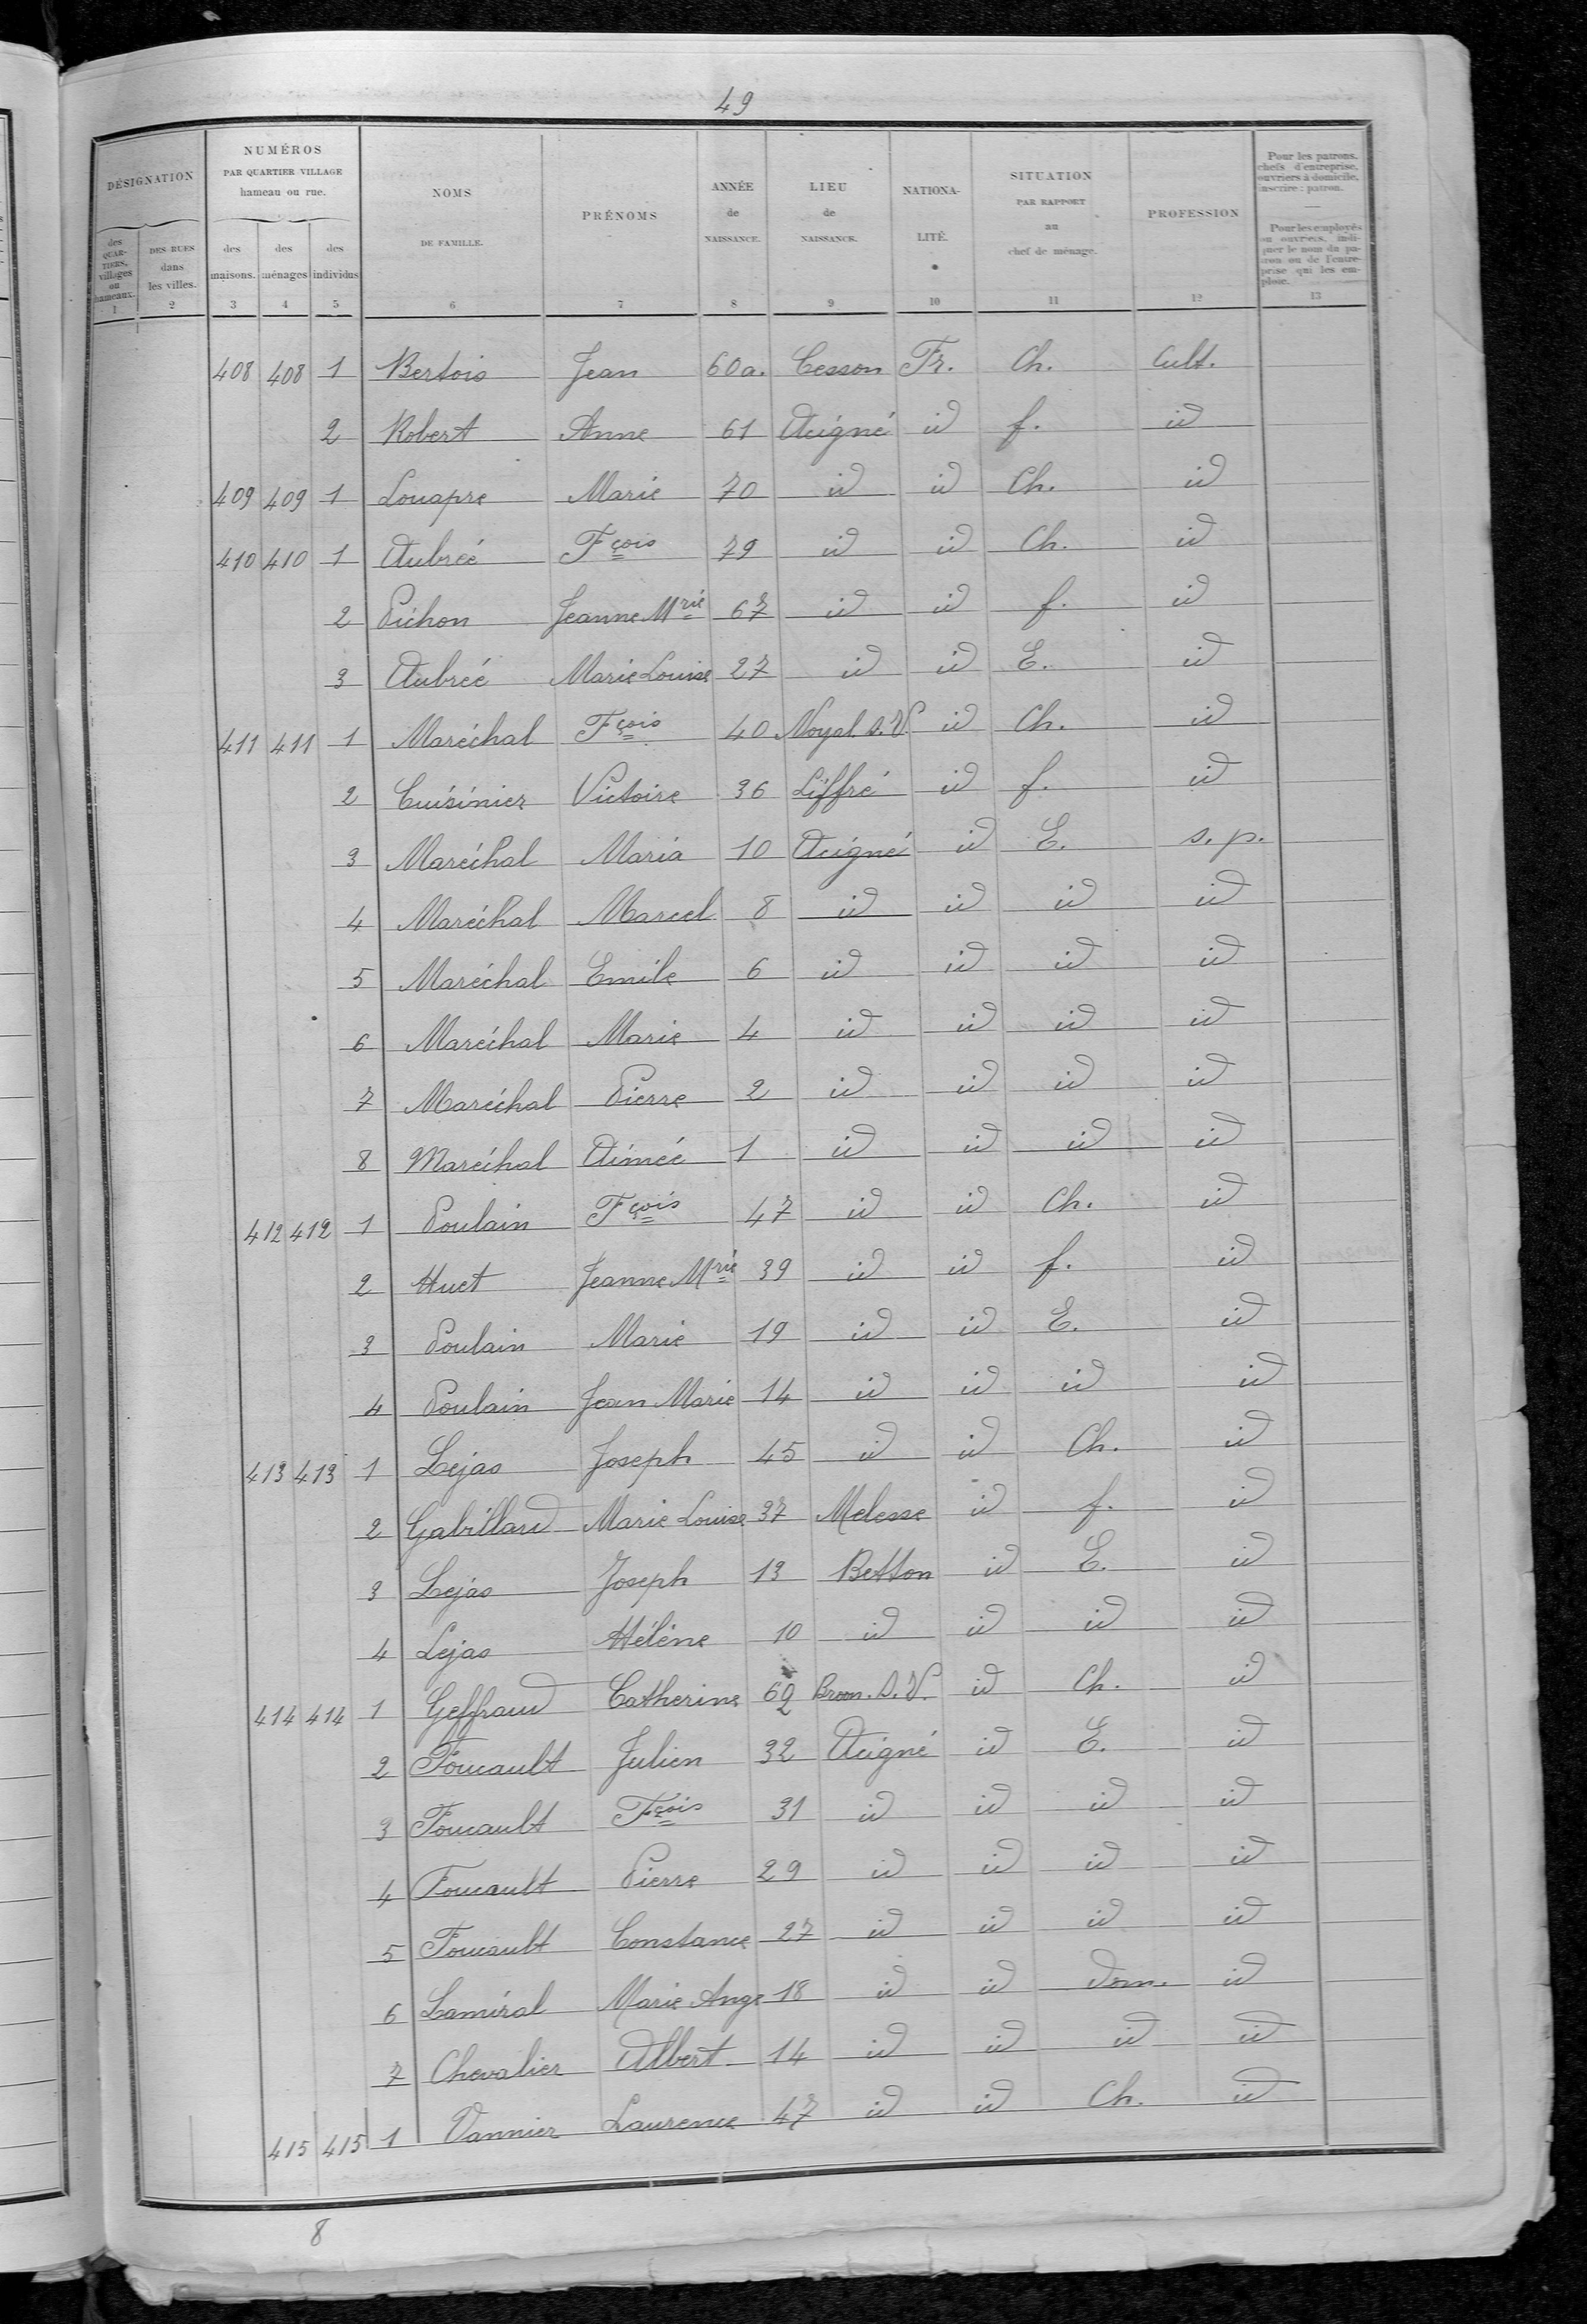 49
DÉSIGNATION
NUMÉROS
PAR QUARTIER VILLAGE
hameau ou rue.
NOMS
DE FAMILLE.
PRÉNOMS
ANNÉE
de
NAISSANCE.
LIEU
de
NAISSANCE.
NATIONA-
LITÉ.
SITUATION
PAR RAPPORT
au
chef de ménage.
PROFESSION
Pour les patrons,
chefs d'entreprise,
ouvriers à domicile,
inscrire : patron.
Pour les employés
ou ouvriers, indi-
quer le nom du pa-
tron ou de l'entre-
prise qui les em-
ploie.
des
QUAR-
TIERS,
villages
ou
hameaux.
DES RUES
dans
les villes.
des
maisons.
des
ménages
des
individus
1 2 3 4 5 6 7 8 9 10 11 12 13
408 408 1 Bertois Jean 60 a. Cesson Fr. Ch. Cult.
2 Robert Anne 61 Acigné id f. id
409 409 1 Louapre Marie 70 id id Ch. id
410 410 1 Aubrée Fçois 79 id id Ch. id
2 Pichon Jeanne Mrie 67 id id f. id
3 Aubrée Marie Louise 27 id id E. id
411 411 1 Maréchal Fçois 40 Noyal s. V. id Ch. id
2 Cuisinier Victoire 36 Liffré id f. id
3 Maréchal Maria 10 Acigné id E. s. p.
4 Maréchal Marcel 8 id id id id
5 Maréchal Emile 6 id id id id
6 Maréchal Marie 4 id id id id
7 Maréchal Pierre 2 id id id id
8 Maréchal Aimée 1 id id id id
412 412 1 Poulain Fçois 47 id id Ch. id
2 Huet Jeanne Mrie 39 id id f. id
3 Poulain Marie 19 id id E. id
4 Poulain Jean Marie 14 id id id id
413 413 1 Lejas Joseph 45 id id Ch. id
2 Gabillard Marie Louise 37 Melesse id f. id
3 Lejas Joseph 13 Betton id E. id
4 Lejas Hélène 10 id id id id
414 414 1 Geffraud Catherine 62 Broon. s. V. id Ch. id
2 Foucault Julien 32 Acigné id E. id
3 Foucault Fçois 31 id id id id
4 Foucault Pierre 29 id id id id
5 Foucault Constance 27 id id id id
6 Lamiral Marie Ange 18 id id dom. id
7 Chevalier Albert 14 id id id id
415 415 1 Vannier Laurence 47 id id Ch. id
8